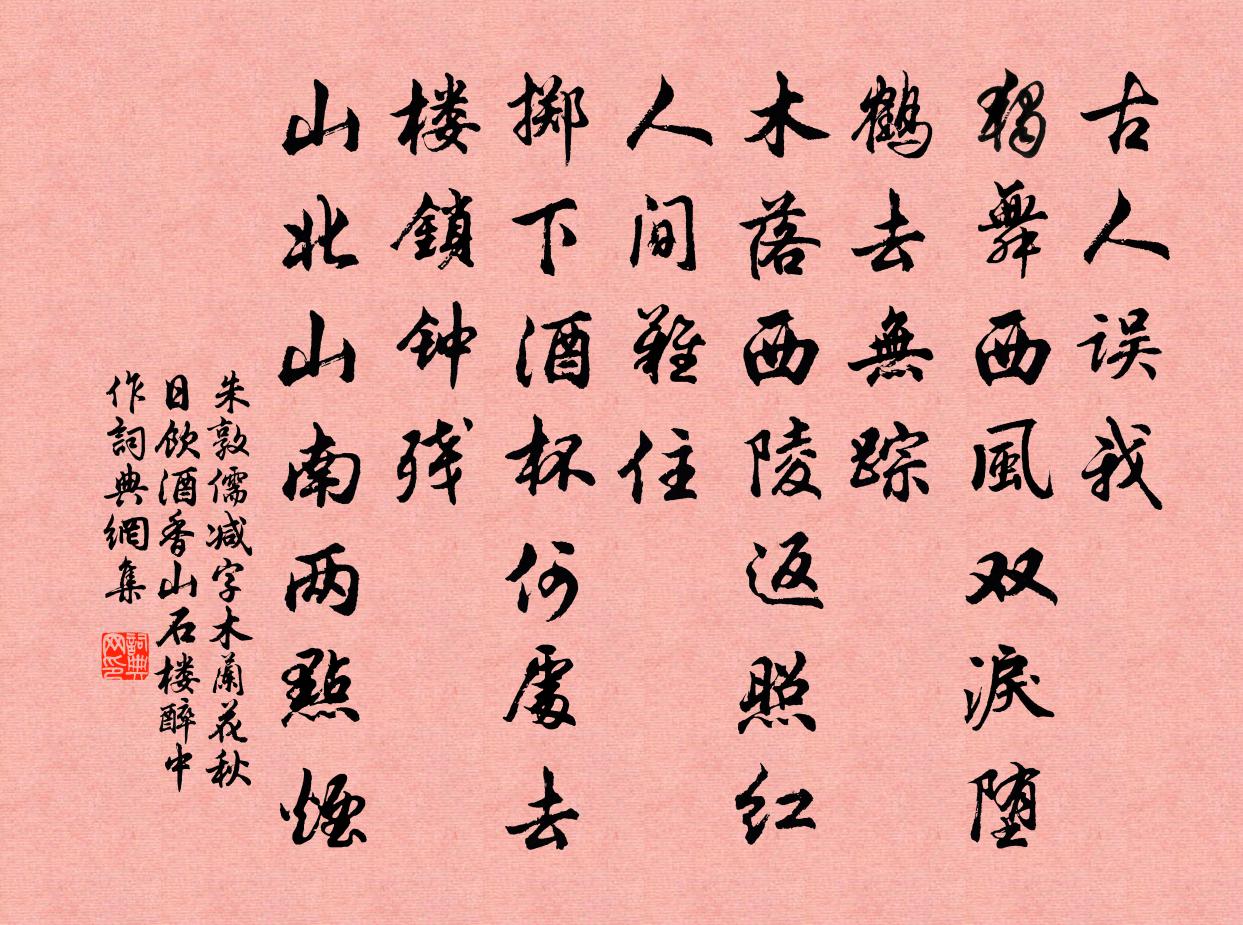 古人误我
獨舞西風双淚堕
鶴去無踪
木落西陵返照红
人间難住
掷下酒杯何處去
楼鎖钟残
山北山南两點煙
朱敦儒减字木蘭花秋
日飲酒香山石楼醉中
作詞典網集
詞典网印